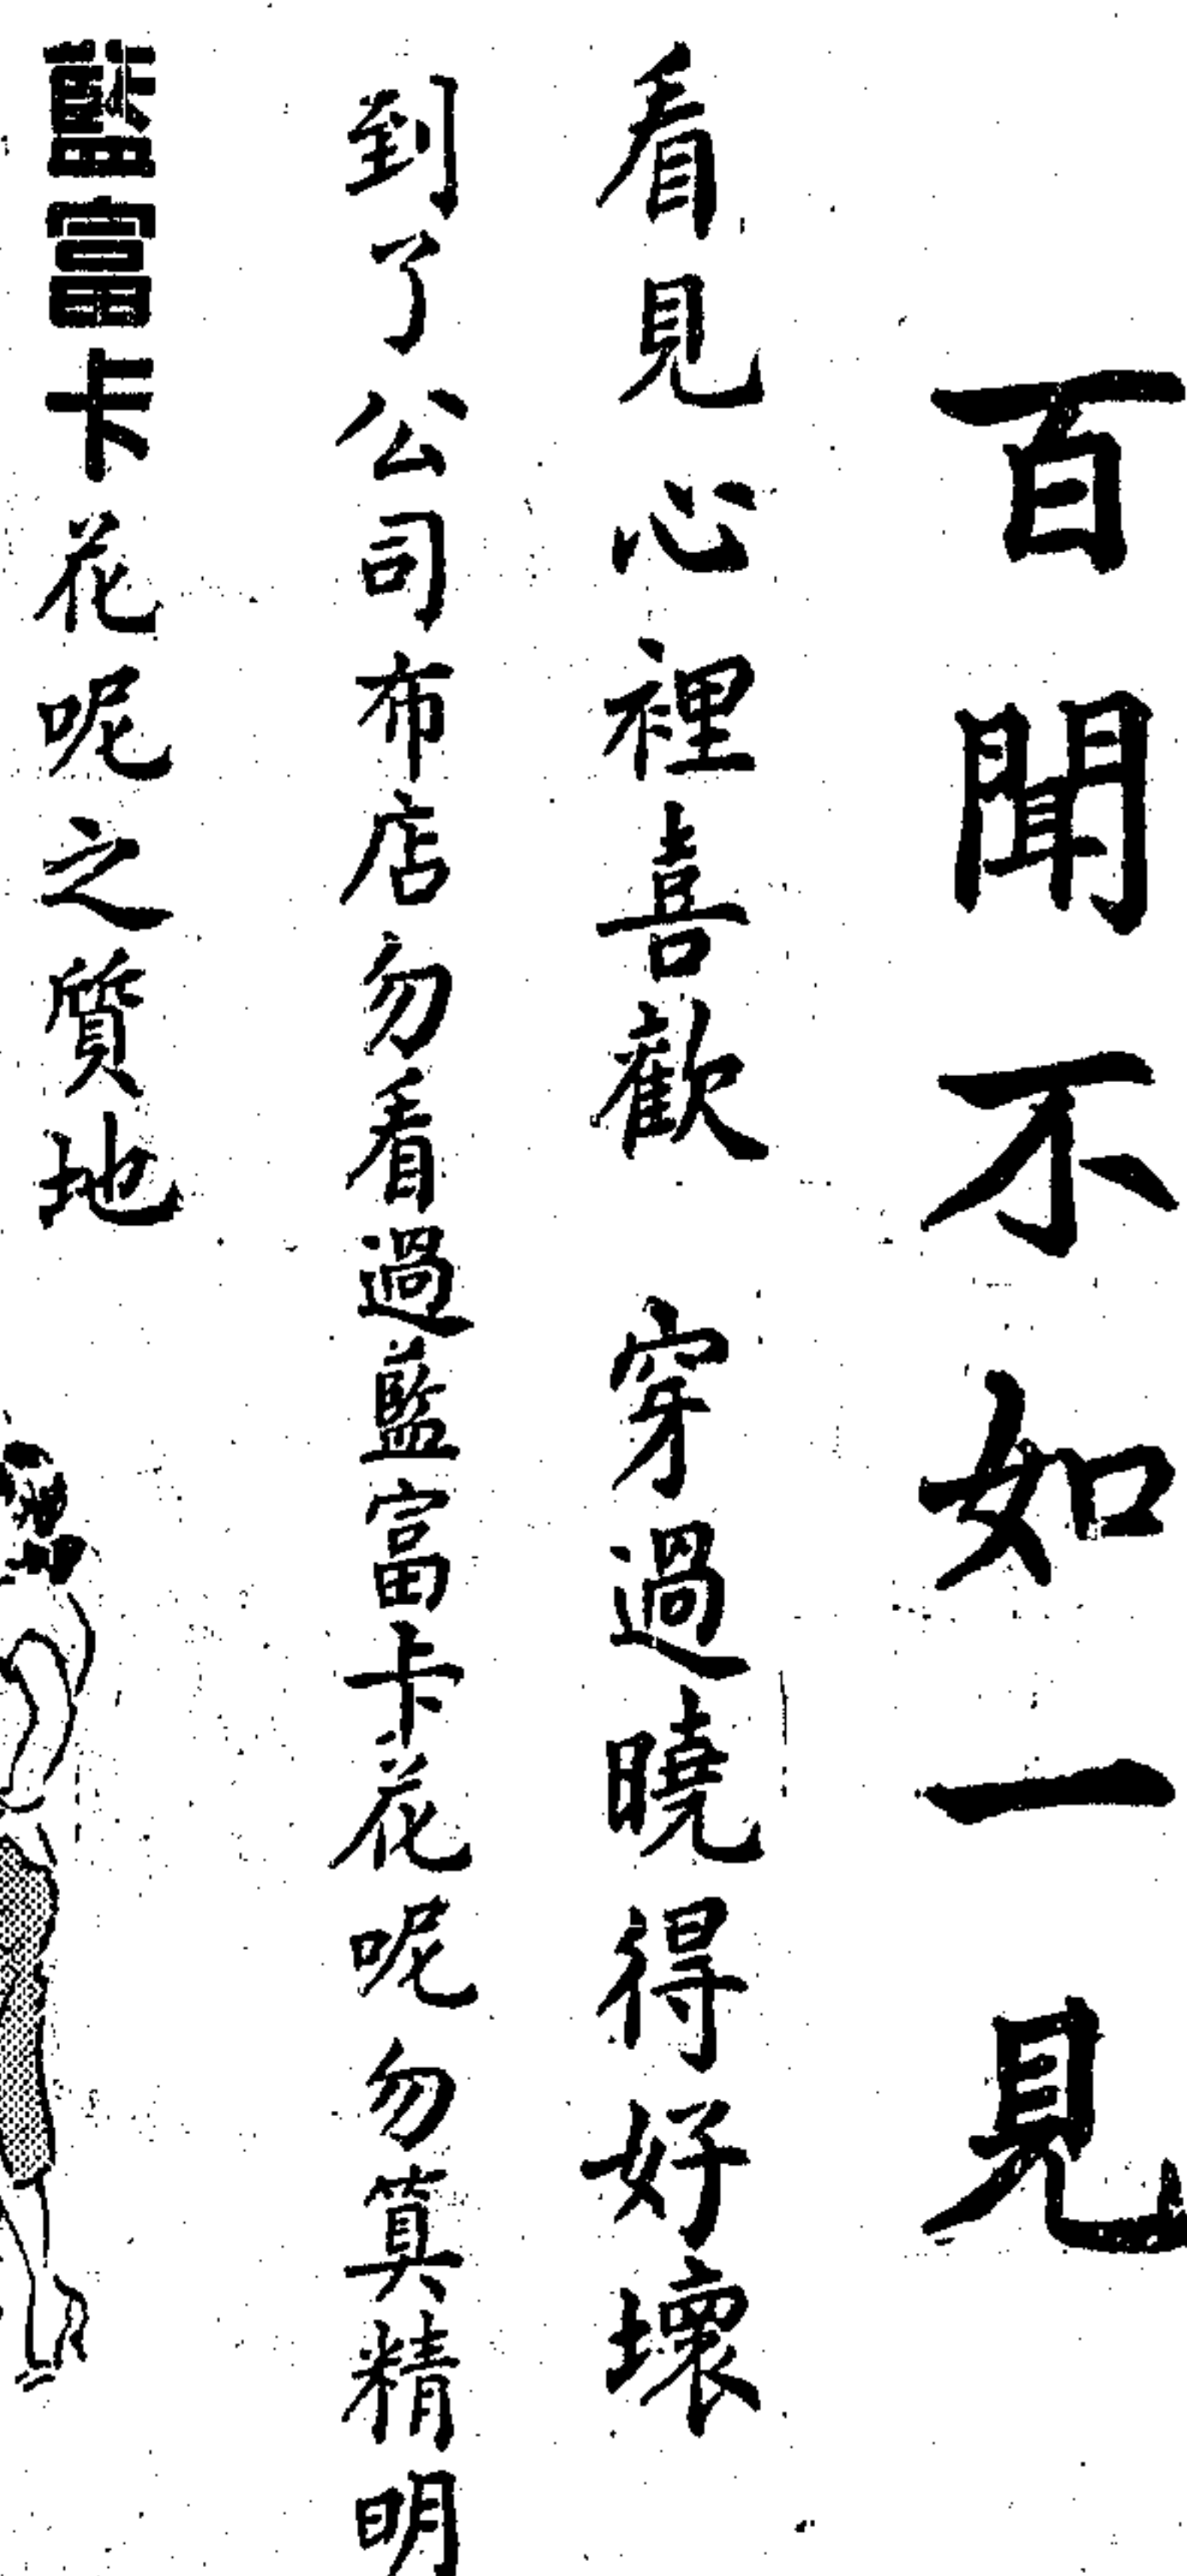 百聞不如一見
看見心裡喜歡 穿過曉得好壞
到了公司布店勿看過藍富卡花呢勿算精明
藍富卡花呢之質地